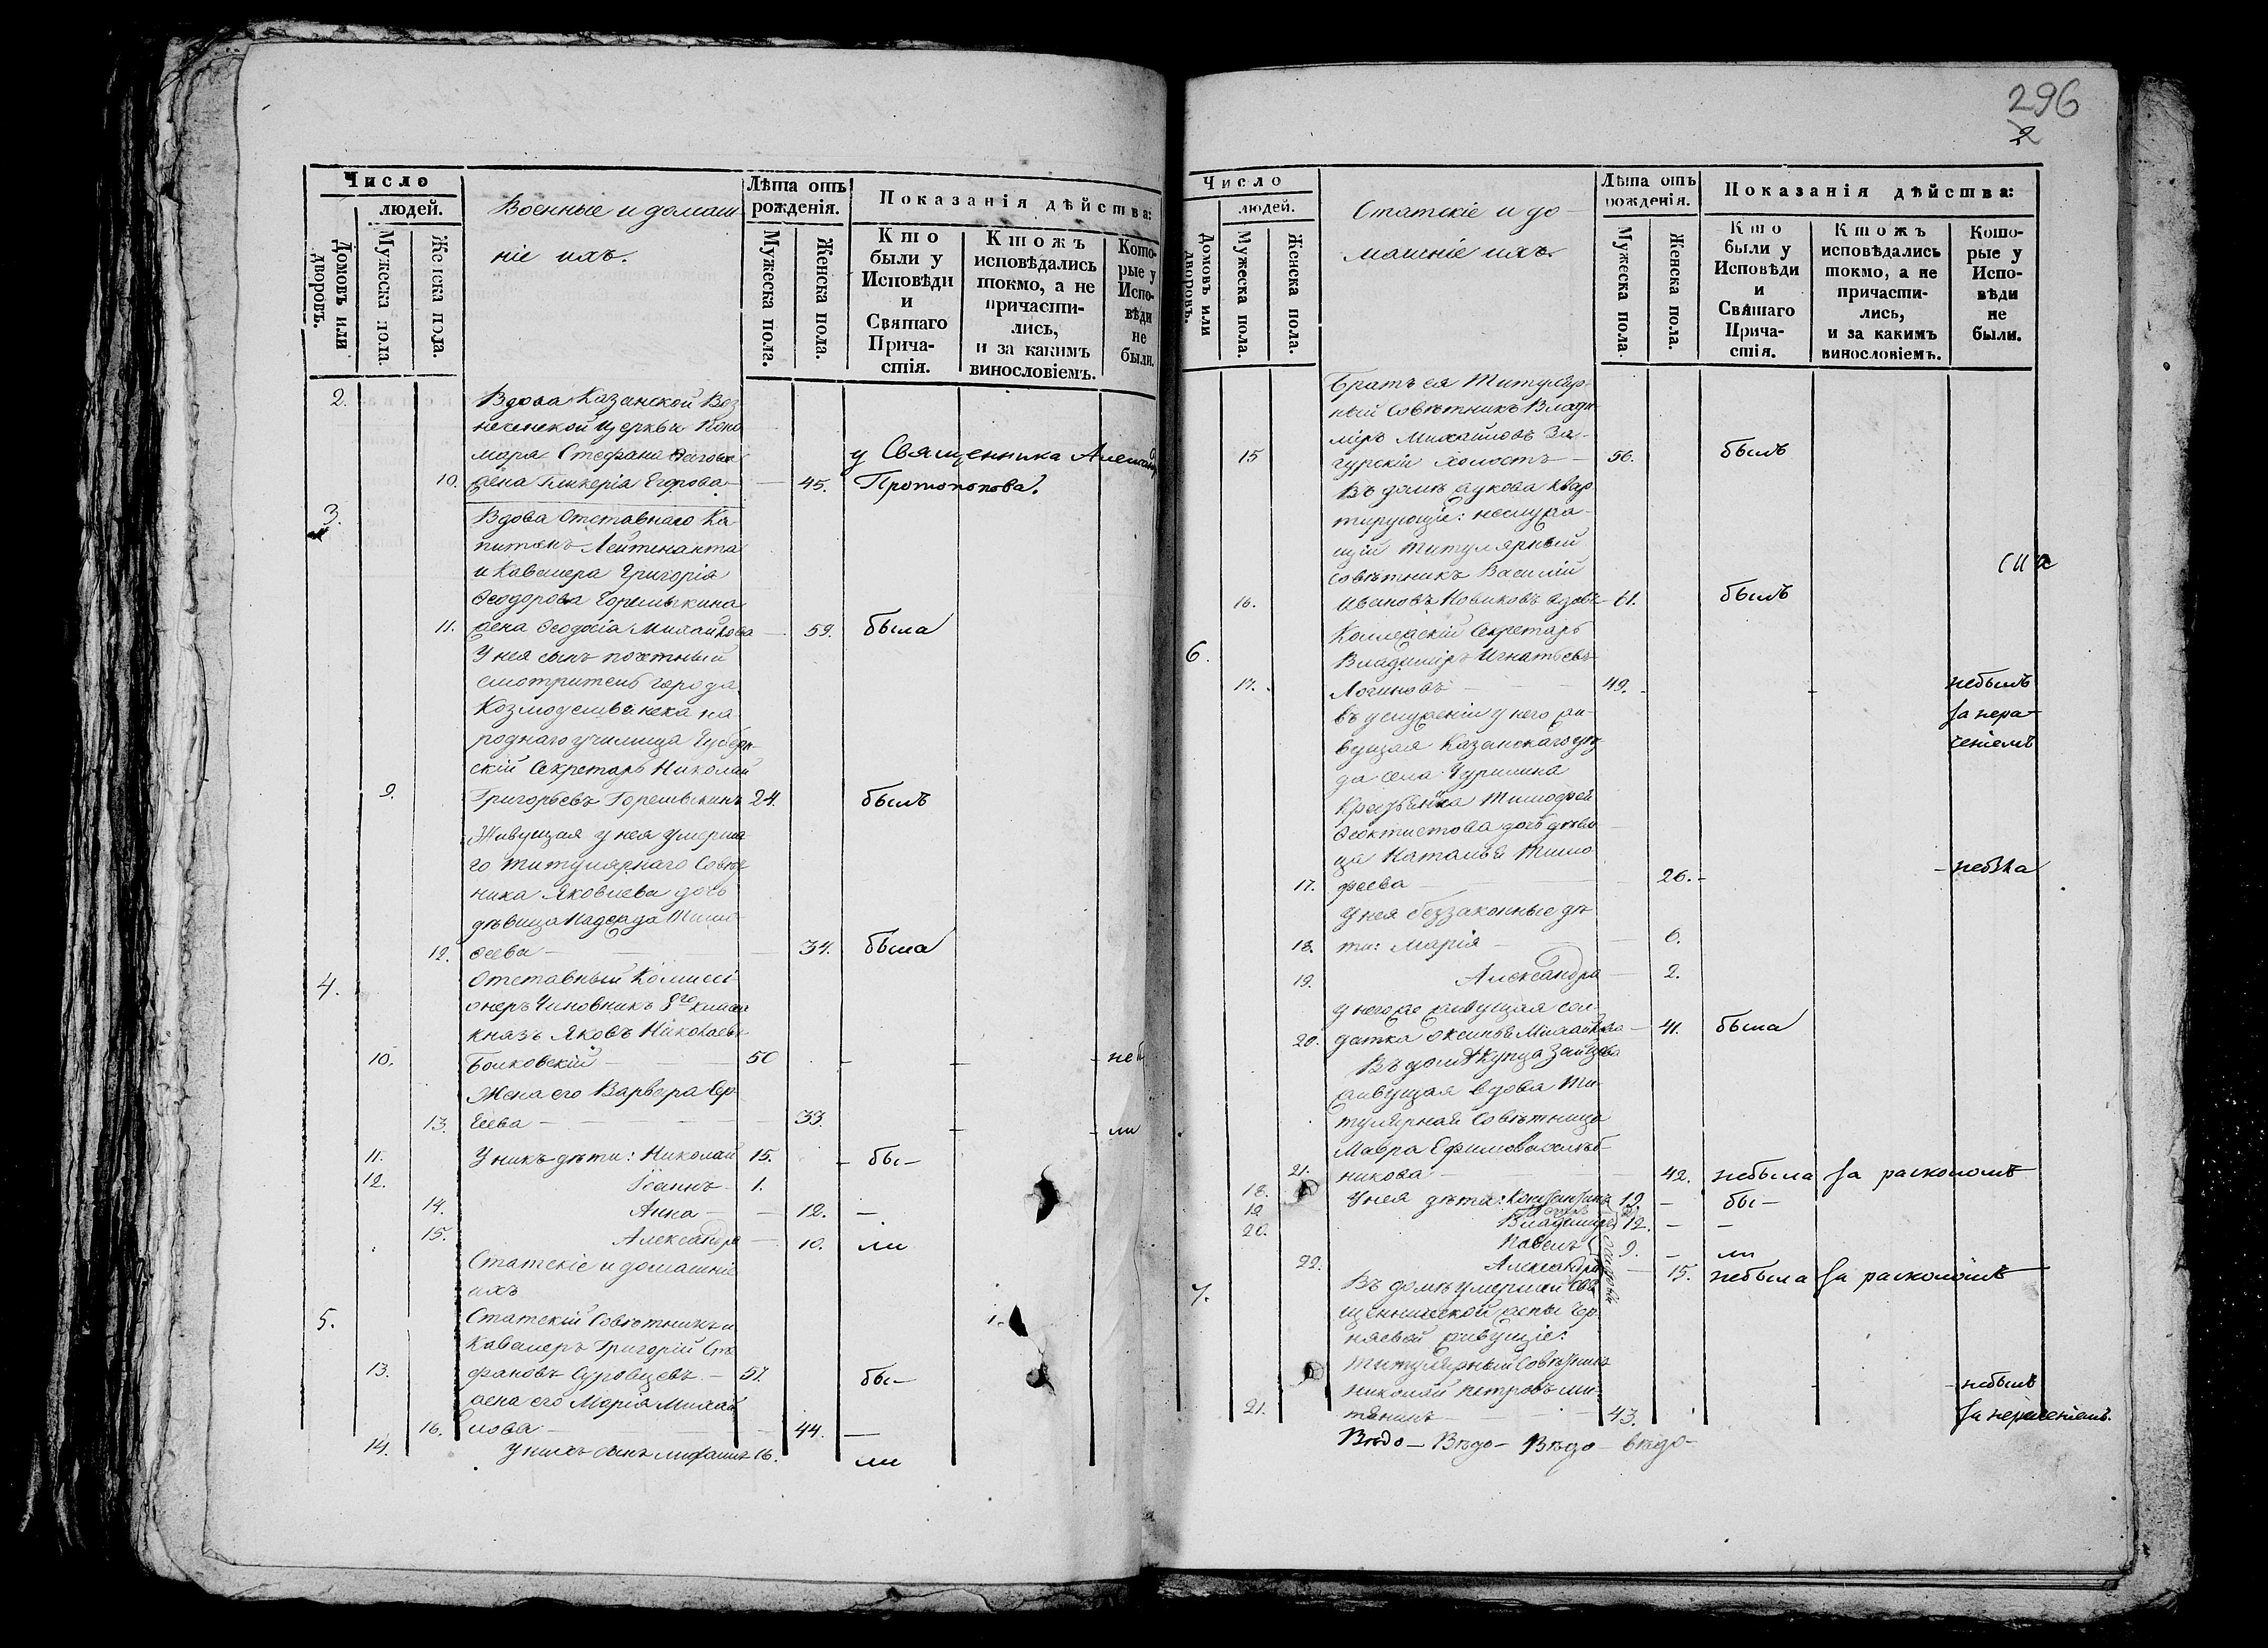 Число
людей.
Домовъ или дворовъ.
Мужеска пола.
Женска пола.
Военные и домаш-
ніе ихъ.
Лѣта отъ рожденія.
Мужеска пола.
Женска пола.
Показанія дѣйства:
Кто были у Исповѣди и Святаго Прича-стія.
Ктожъ исповѣдались токмо, а не причасти-лись, и за какимъ винословіемъ.
Кото-рые у Испо-вѣди не были.
2. Вдова Казанской Воз-
несенской Церкви Поно
маря Стефана у Священника
10. жена Гликерія Егорова — 45. Протопопова.
3. Вдова Отставнаго Ка
питанъ Лейтенанта
и Кавалера Григорія
Ѳеодорова Горемыкина
11. жена Ѳеодосія Михайлова — 59. была
У нея сынъ почетный
смотритель города
Козмодемьянска на
роднаго училища Губерн-
скій Секретарь Николай
9. Григорьевъ Горемыкинъ 24. былъ
Живущая у нея умерша
го титулярнаго Совѣт
ника Яковлева дочь
дѣвица Надежда Тимо-
12. ѳеева — 34. была
4. Отставный Комисі
онеръ Чиновникъ 8го класа
князь Яковъ Николаевъ
10. Болховскій — 50 — — — неб
Жена его Варвара Сер
13. геева — 33. — — ли
11. У нихъ дѣти: Николай 15. — бы—
12. Іоаннъ 1.
14. Анна — — 12. —
15. Александра — 10. ли
Статскіе и домашніе
ихъ
5. Статскій Совѣтникъ и
Кавалеръ Григорій Сте
13. фановъ Суровцевъ — 57. бы—
жена его Марія Михай
16. лова — 44. —
14. У нихъ сынъ 16. ли
296
2
Число
людей.
Домовъ или дворовъ.
Мужеска пола.
Женска пола.
Статскіе и до-
машніе ихъ.
Лѣта отъ рожденія.
Мужеска пола.
Женска пола.
Показанія дѣйства:
Кто были у Исповѣди и Святаго Прича-стія.
Ктожъ исповѣдались токмо, а не причасти-лись, и за какимъ винословіемъ.
Кото-рые у Испо-вѣди не были.
Братъ ея Титуляр-
ный Совѣтникъ Влади-
міръ Михайловъ За-
15 гурскій холостъ — 56. былъ
Въ домѣ Жукова Квар
тирующіе: неслужа-
щій Титулярный
совѣтникъ Василій
16. Ивановъ Новиковъ вдовъ — 61. былъ
6. Коллежскій Секретарь
Владиміръ Игнатьевъ
17. Логиновъ — 49. — небылъ
въ услуженіи у него жи- за нера-
вущая Казанскаго уѣз ченіемъ
да села Чурилина
Крестьянка Тимофея
Ѳеоктистова дочь дѣви
ца Наталья Тимо
17. фѣева — 26. —
У нея беззаконныя дѣ
18. ти: Марія — 6.
19. Александра — 2.
у него же живущая сол-
20. датка Оксинья Михайлова — 41. была
Въ домѣ Купца Зайцева
живущая вдова Ти-
тулярная Совѣтница
Мавра Ефимова Хлѣб-
21. никова — 42. небыла за расколомъ
18. У нея дѣти: Константинъ 19 — бы—
19 Владиміръ 12. — —
20. Павелъ 9. — ли
22. Александра — 15. небыла за расколомъ
7. Въ домѣ умершей Свя
щеннической жены Ер
няевой живущіе:
Титулярный Совѣтникъ
Николай Петровъ Ми- — небылъ
21. тянинъ — 43. за нераченіемъ.
Вѣдо— Вѣдо— Вѣдо— вѣдо—